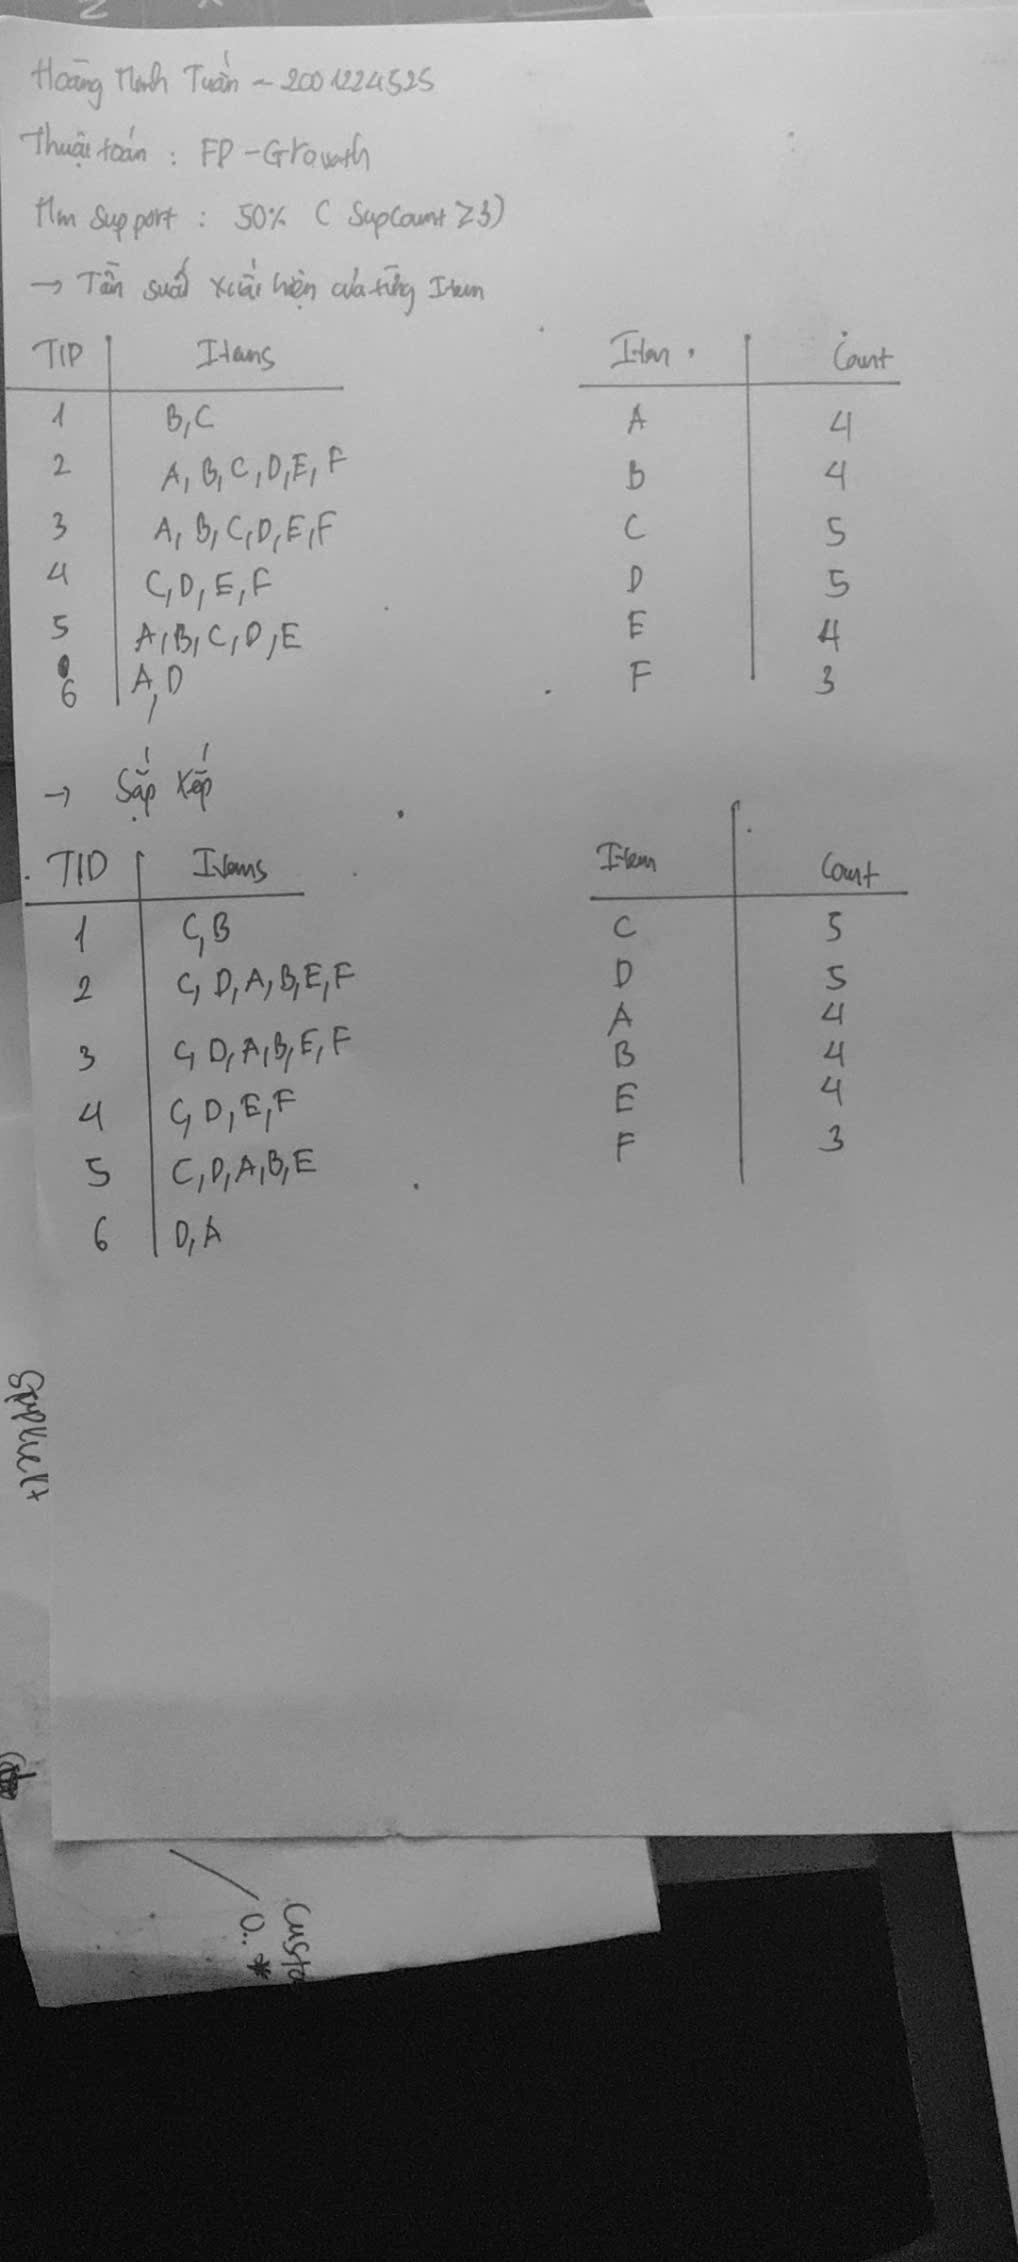 Hoàng Minh Tuấn - 2001224525
Thuật toán : FP-Growth
Min Support : 50% ( SupCount ≥ 3)
→ Tần suất xuất hiện của từng Item
TIP Items
1 B,C
2 A, B, C, D, E, F
3 A, B, C, D, E, F
4 C, D, E, F
5 A, B, C, D, E
6 A, D
Item Count
A 4
B 4
C 5
D 5
E 4
F 3
→ Sắp xếp
TID Items
1 C, B
2 C, D, A, B, E, F
3 C, D, A, B, E, F
4 C, D, E, F
5 C, D, A, B, E
6 D, A
Item Count
C 5
D 5
A 4
B 4
E 4
F 3
0..*
Custo